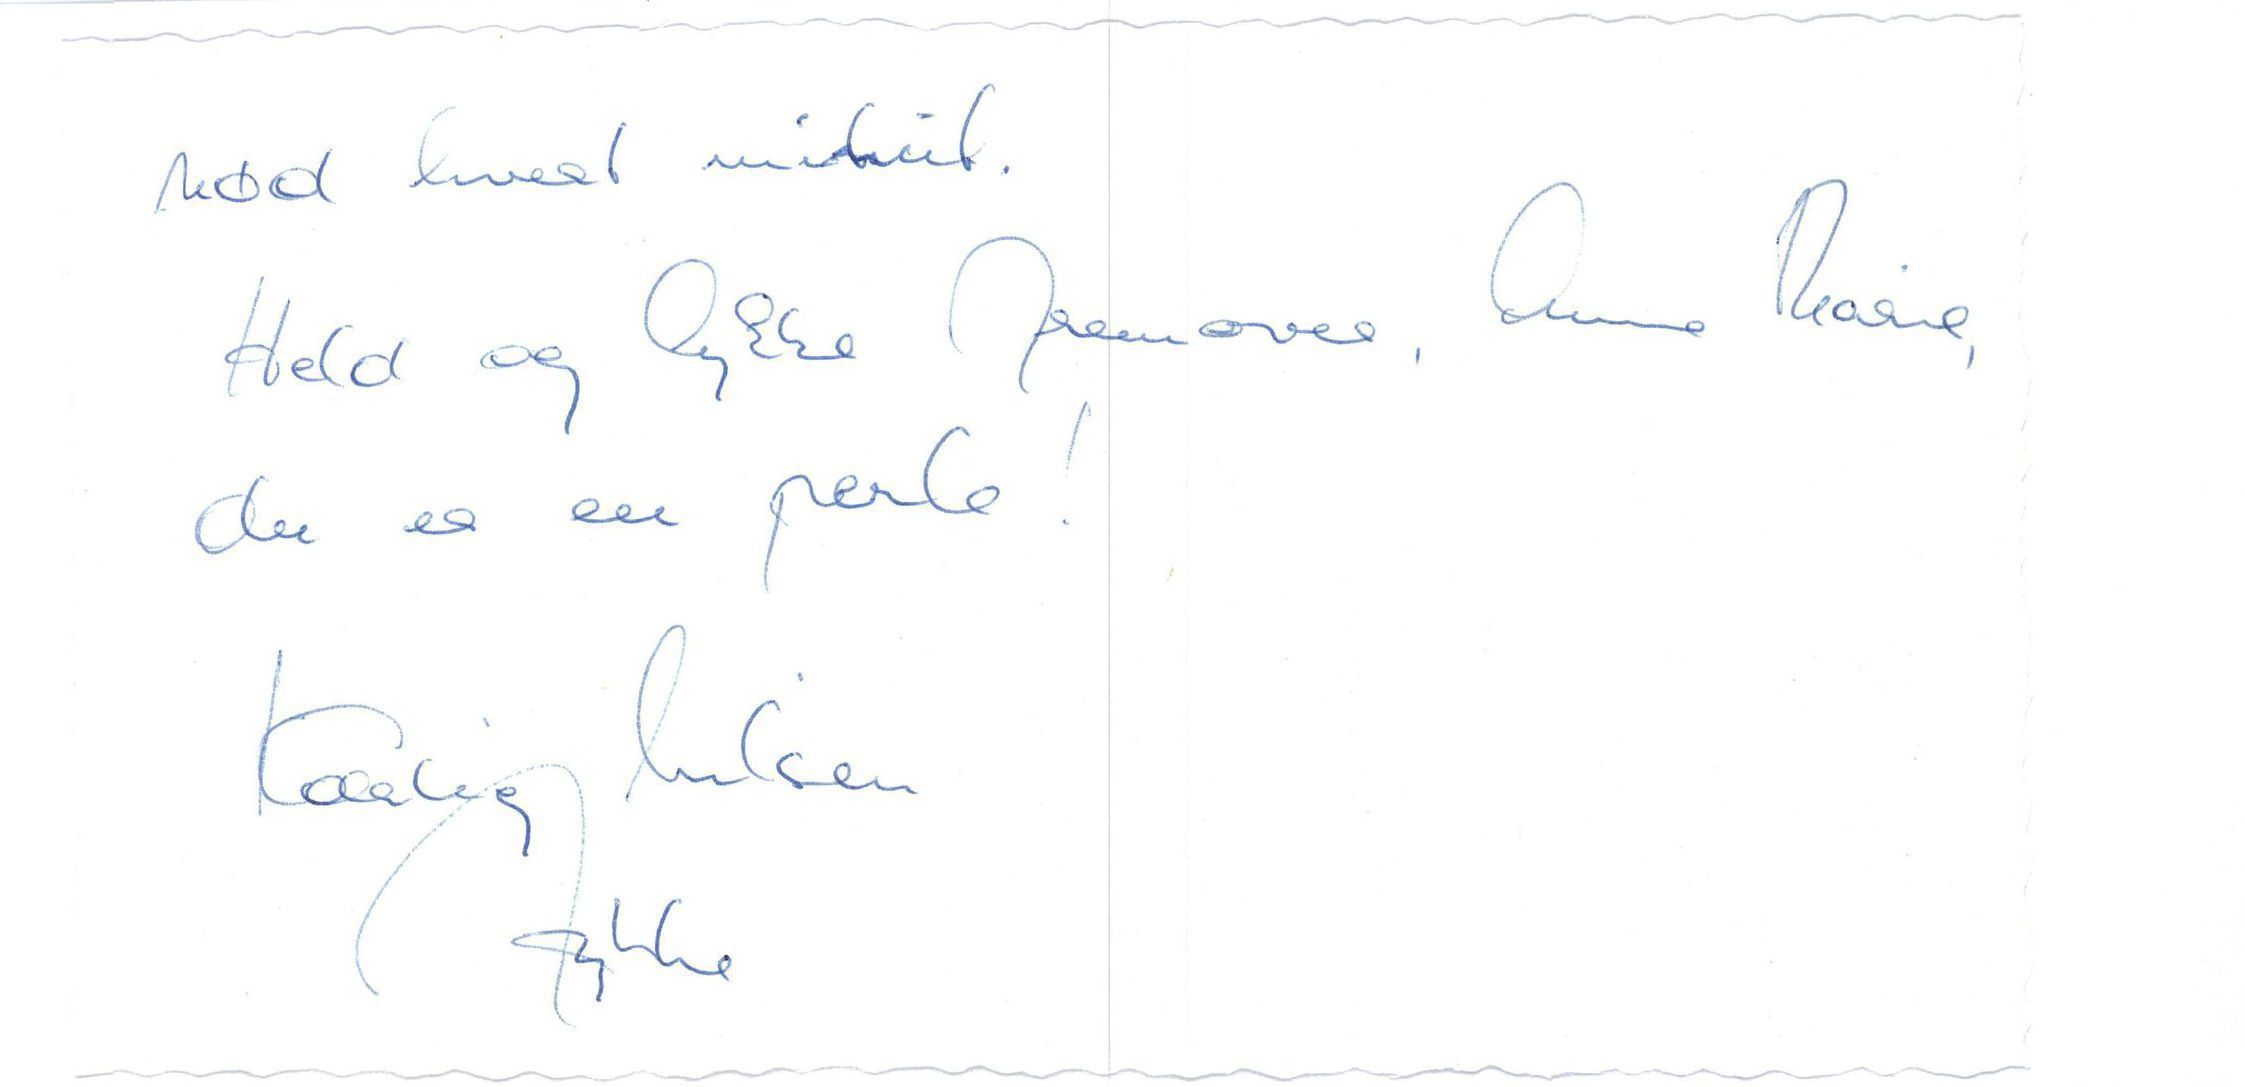 nød hvert minut.
Held og lykke fremover, Anne Marie,
du er en perle!
Kærlig hilsen